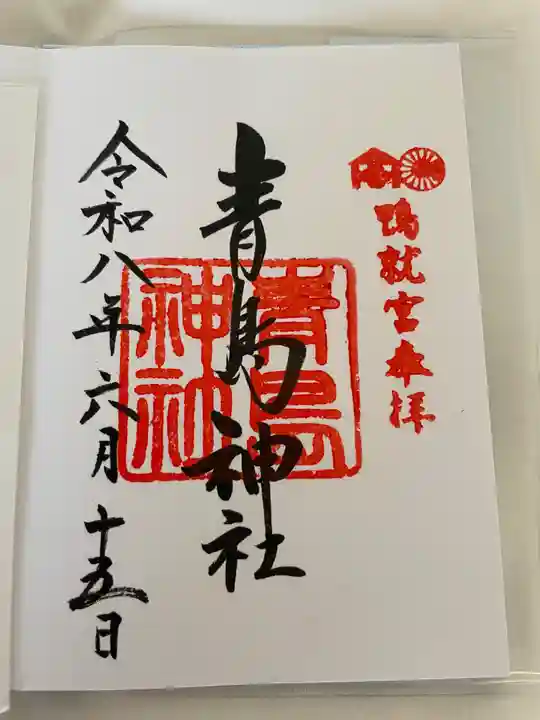 鴨就宮奉拝
青島神社
青島神社
令和八年六月十五日